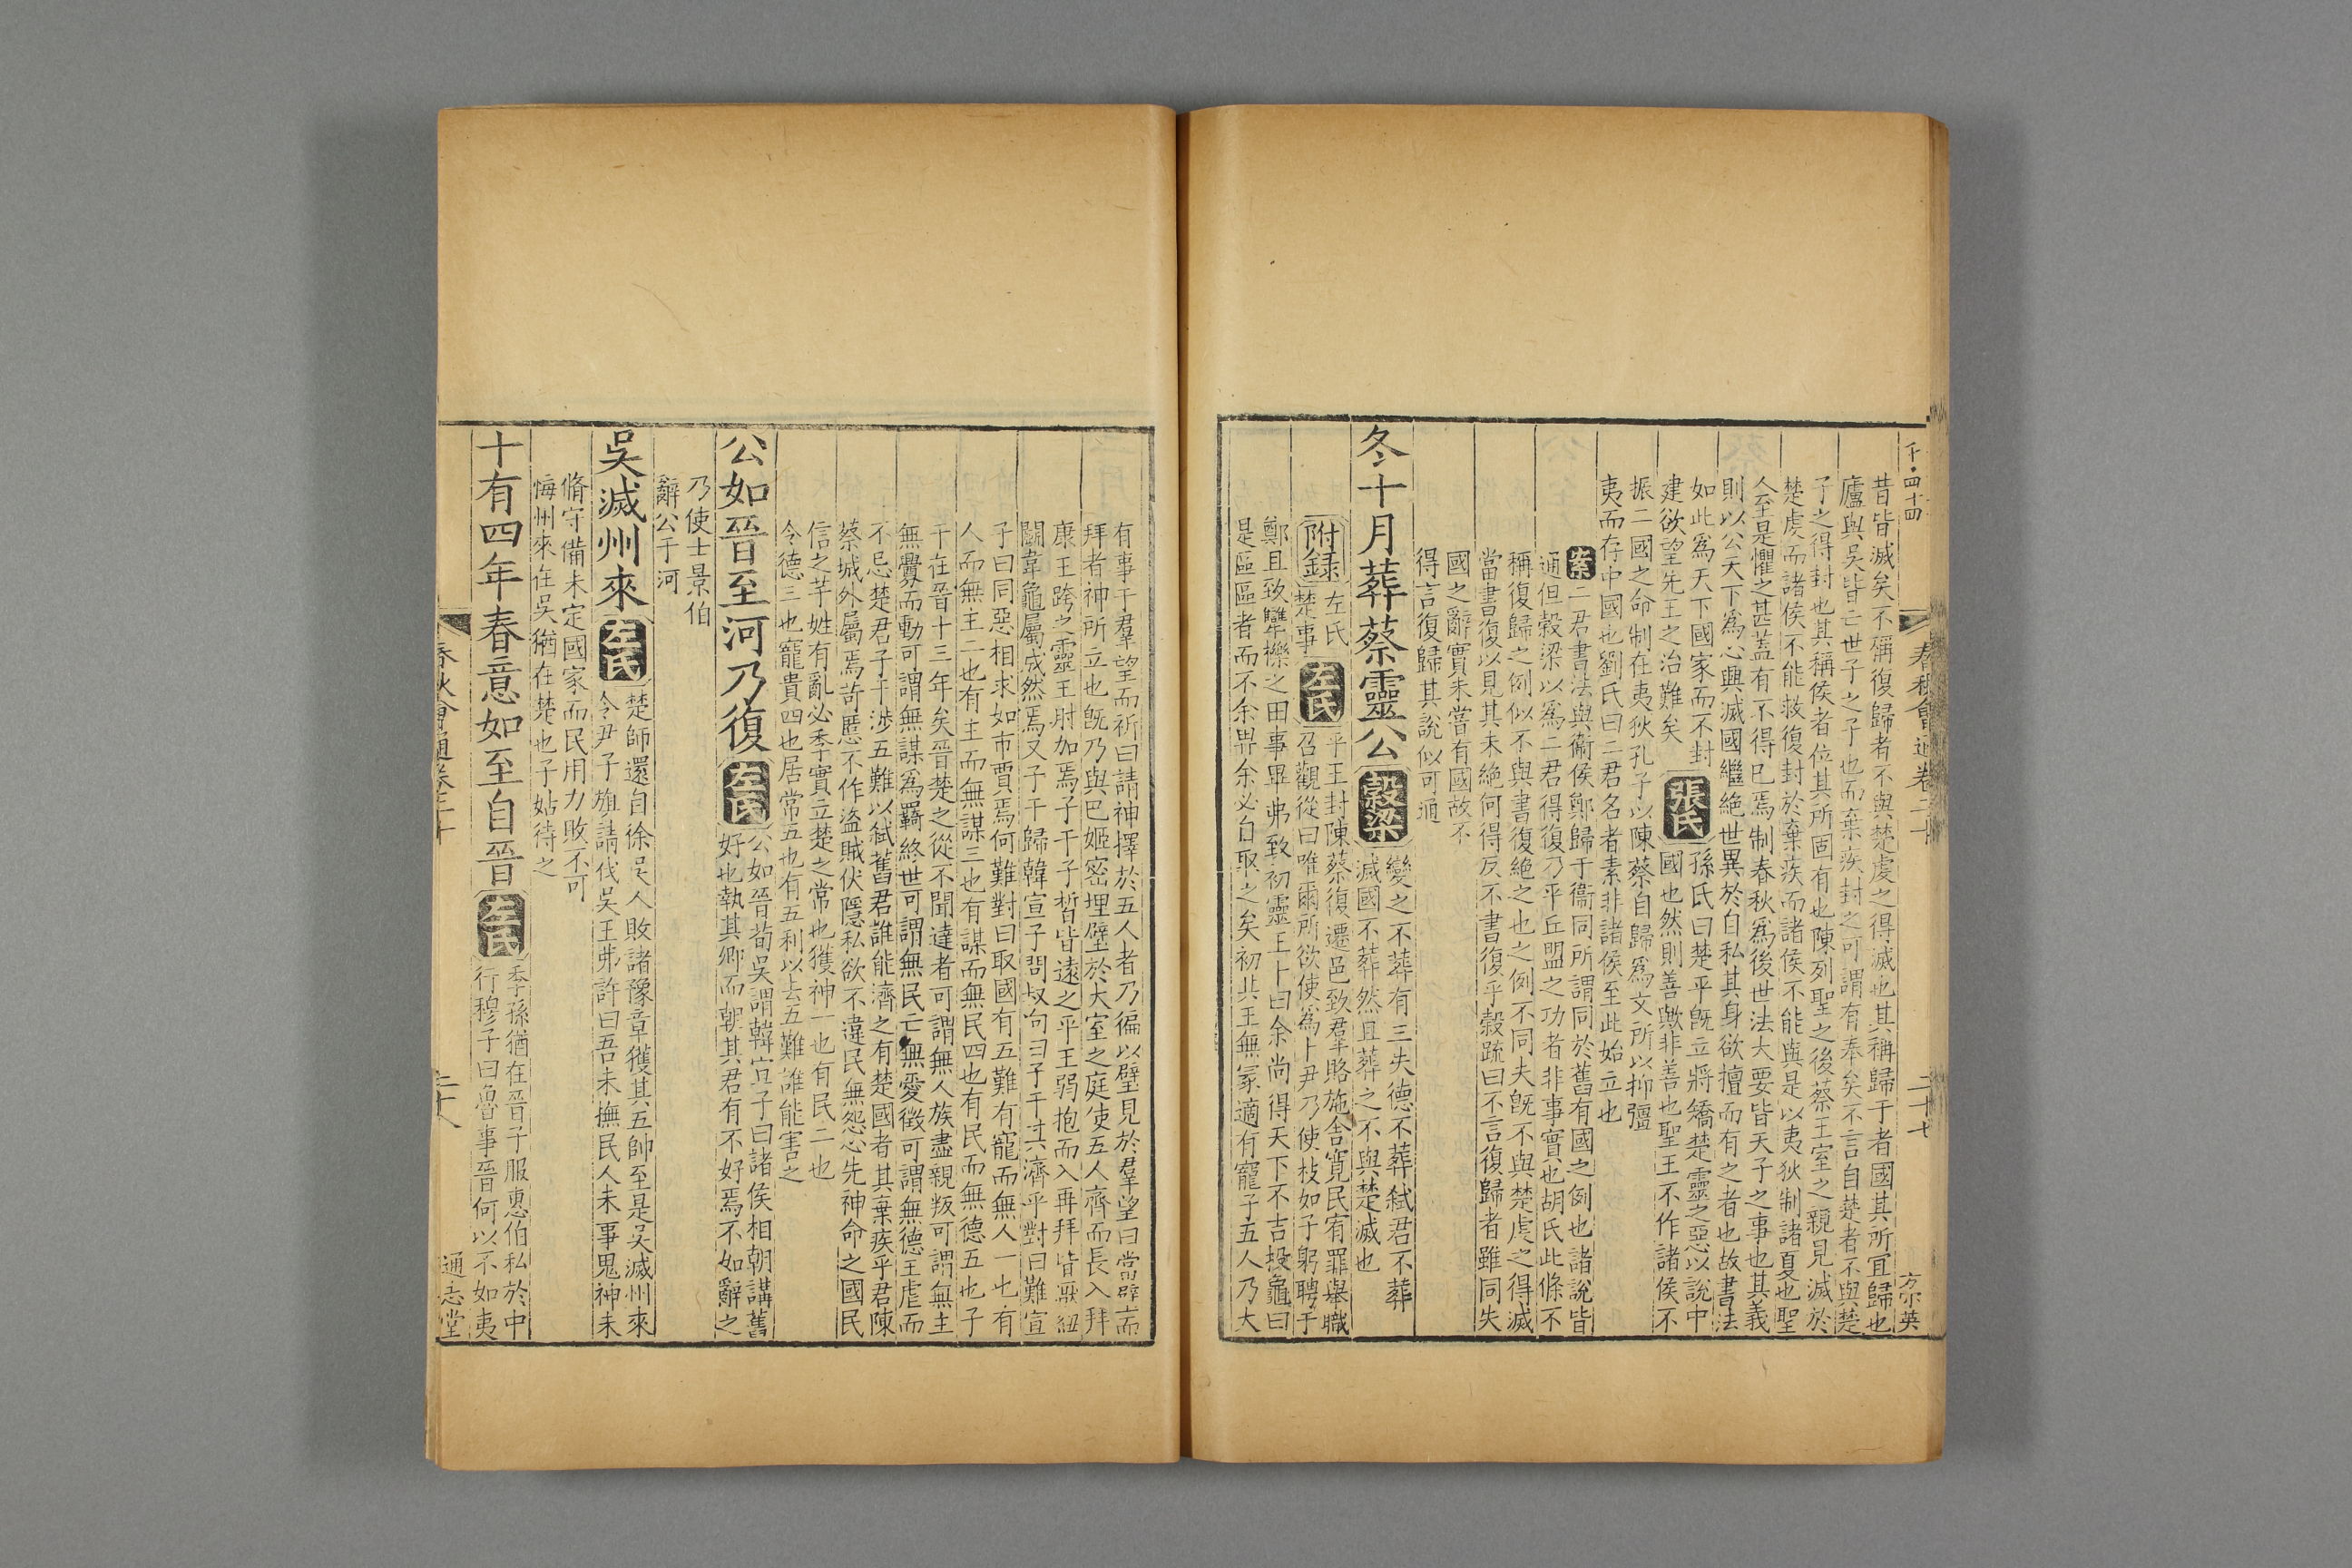 千四十四
春秋會通卷二十
二十七
方尔英
昔皆滅矣不稱復歸者不與楚虔之得滅也其稱歸于者國其所宜歸也
廬與吳皆亡世子之子也而棄疾封之可謂有奉矣不言自楚者不與楚
子之得封也其稱侯者位其所固有也陳列聖之後蔡王室之親見滅於
楚虔而諸侯不能救復封於棄疾而諸侯不能與是以夷狄制諸夏也聖
人至是懼之甚蓋有不得已焉制春秋爲後世法大要皆天子之事也其義
則以公天下爲心興滅國繼絶世異於自私其身欲擅而有之者也故書法
如此爲天下國家而不封
建欲望先王之治難矣
張氏
孫氏曰楚平旣立將矯楚靈之惡以說中
國也然則善歟非善也聖王不作諸侯不
振二國之命制在夷狄孔子以陳蔡自歸爲文所以抑彊
夷而存中國也劉氏曰二君名者素非諸侯至此始立也
案二君書法與衞侯鄭歸于衞同所謂同於舊有國之例也諸說皆
通但穀梁以爲二君得復乃平丘盟之功者非事實也胡氏此條不
稱復歸之例似不與書復絶之也之例不同夫旣不與楚虔之得滅
當書復以見其未絶何得反不書復乎穀疏曰不言復歸者雖同失
國之辭實未嘗有國故不
得言復歸其說似可通
冬十月葬蔡靈公
穀梁
變之不葬有三失德不葬弑君不葬
滅國不葬然且葬之不與楚滅也
附録
左氏
楚事
左氏
平王封陳蔡復遷邑致羣賂施舍寛民宥罪舉職
召觀從曰唯爾所欲使爲卜尹乃使枝如子躬聘于
鄭且致犫櫟之田事畢弗致初靈王卜曰余尚得天下不吉投龜曰
是區區者而不余畀余必自取之矣初共王無冢適有寵子五人乃大
有事于羣望而祈曰請神擇於五人者乃徧以璧見於羣望曰當璧而
拜者神所立也旣乃與巴姬密埋璧於大室之庭使五人齊而長入拜
康王跨之靈王肘加焉子干子晳皆遠之平王弱抱而入再拜皆厭紐
鬬韋龜屬成然焉又子干歸韓宣子問叔向曰子干其濟乎對曰難宣
子曰同惡相求如市賈焉何難對曰取國有五難有寵而無人一也有
人而無主二也有主而無謀三也有謀而無民四也有民而無德五也子
干在晉十三年矣晉楚之從不聞達者可謂無人族盡親叛可謂無主
無釁而動可謂無謀爲羇終世可謂無民亡無愛徵可謂無德王虐而
不忌楚君子干涉五難以弑舊君誰能濟之有楚國者其棄疾乎君陳
蔡城外屬焉苛慝不作盜賊伏隱私欲不違民無怨心先神命之國民
信之芊姓有亂必季實立楚之常也獲神一也有民二也
令德三也寵貴四也居常五也有五利以去五難誰能害之
公如晉至河乃復
左氏
公如晉荀吳謂韓宣子曰諸侯相朝講舊
好也執其卿而朝其君有不好焉不如辭之
乃使士景伯
辭公于河
吳滅州來
左氏
楚師還自徐吳人敗諸豫章獲其五帥至是吳滅州來
令尹子旗請伐吳王弗許曰吾未撫民人未事鬼神未
脩守備未定國家而民用力敗不可
悔州來在吳猶在楚也子姑待之
十有四年春意如至自晉
左氏
季孫猶在晉子服惠伯私於中
行穆子曰魯事晉何以不如夷
春秋會通卷二十
二十八
通志堂